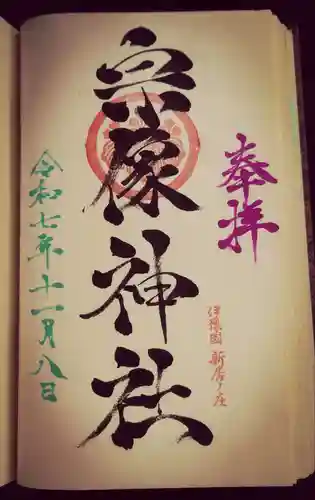 奉拝
伊豫國 新居ノ庄
宗像神社
令和七年十一月八日